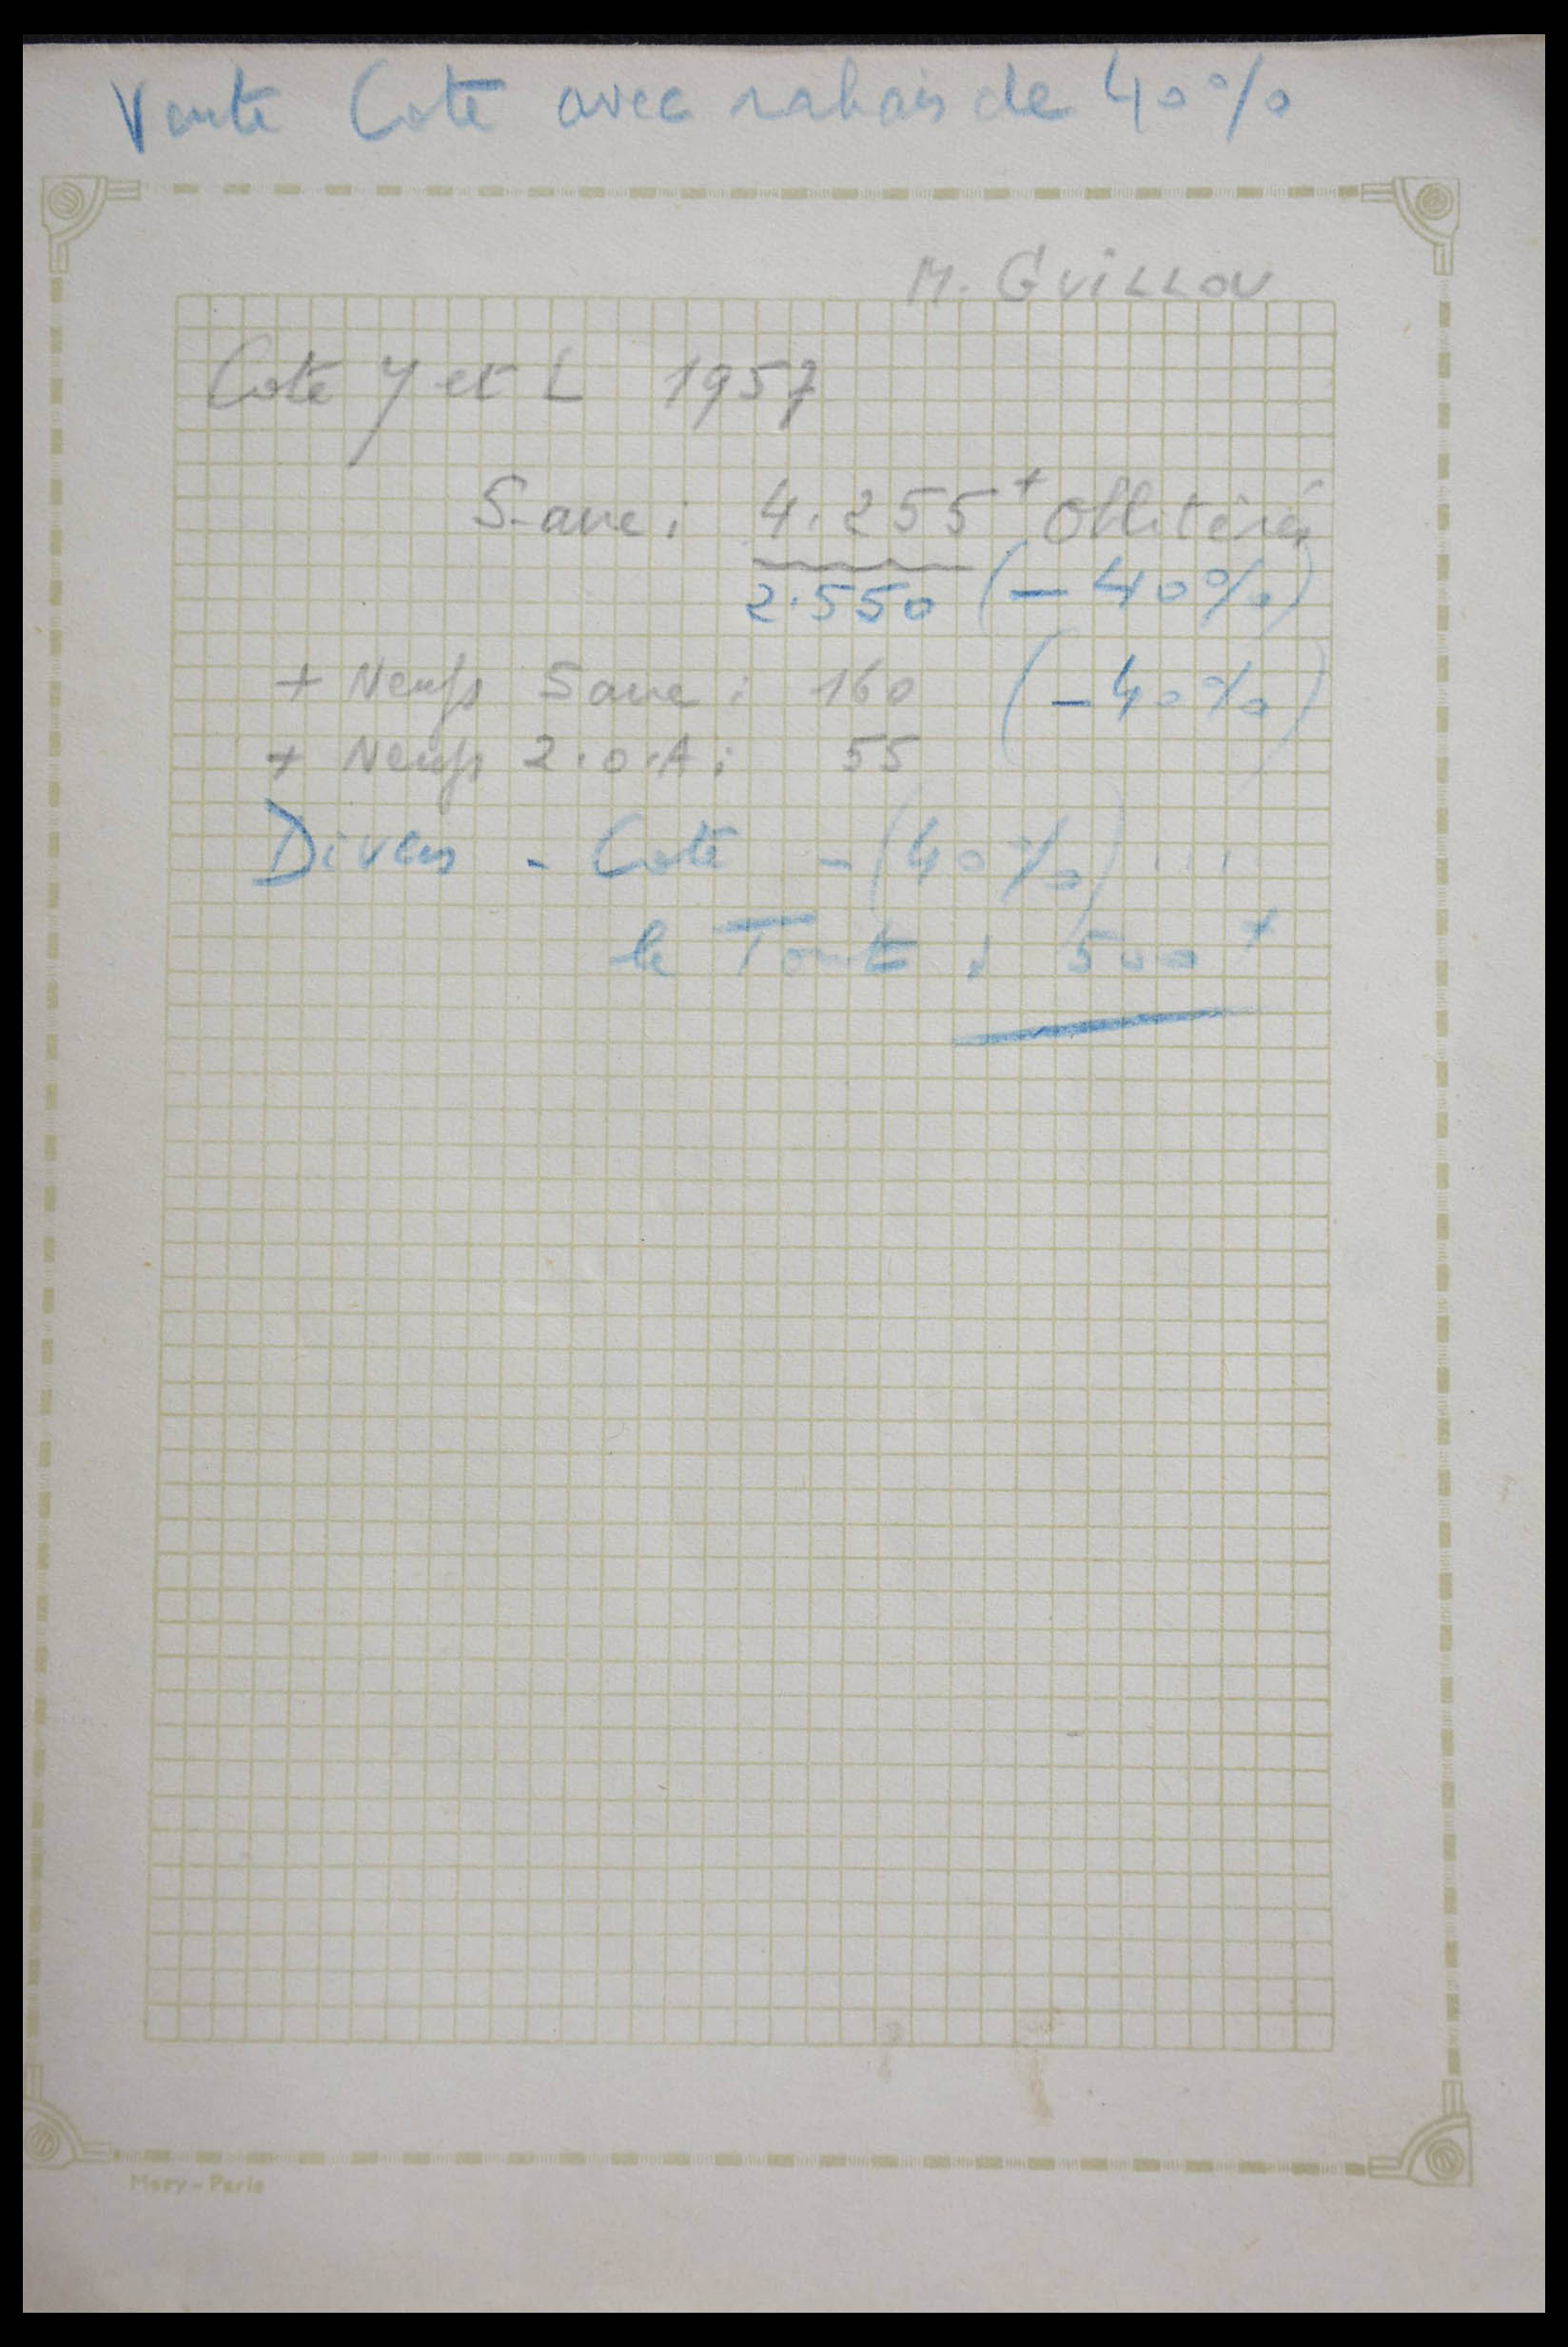 Vente Cote avec rabais de 40%
M. GUILLOU
Cote Y et L 1957
Sarre : 4.255+ Oblitérés
2.550 (- 40%)
+ Neufs Sarre : 160 (- 40%)
+ Neufs Z.O.A : 55
Divers - Cote - (40%) ...
le Tout : 500+
Mery - Paris